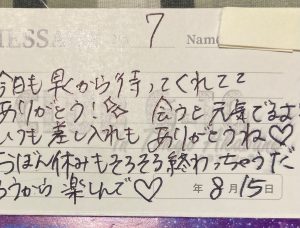 MESSA
7
Name
今日も早くから待ってくれてて
ありがとう!☆ 会うと元気でるよ
いつも差し入れもありがとうね♡
おぼん休みもそろそろ終わっちゃうだ
ろうから楽しんで♡
年8月15日